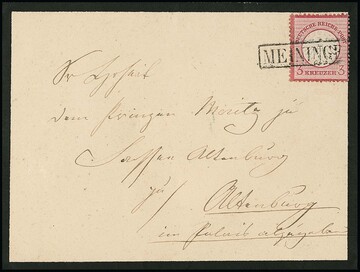 DEUTSCHE REICHS-POST
MEININGE
3 KREUZER 3
Sr Hoheit
dem Prinzen Moritz zu
Sachsen Altenburg
zu
Altenburg
im Palais abzugeben